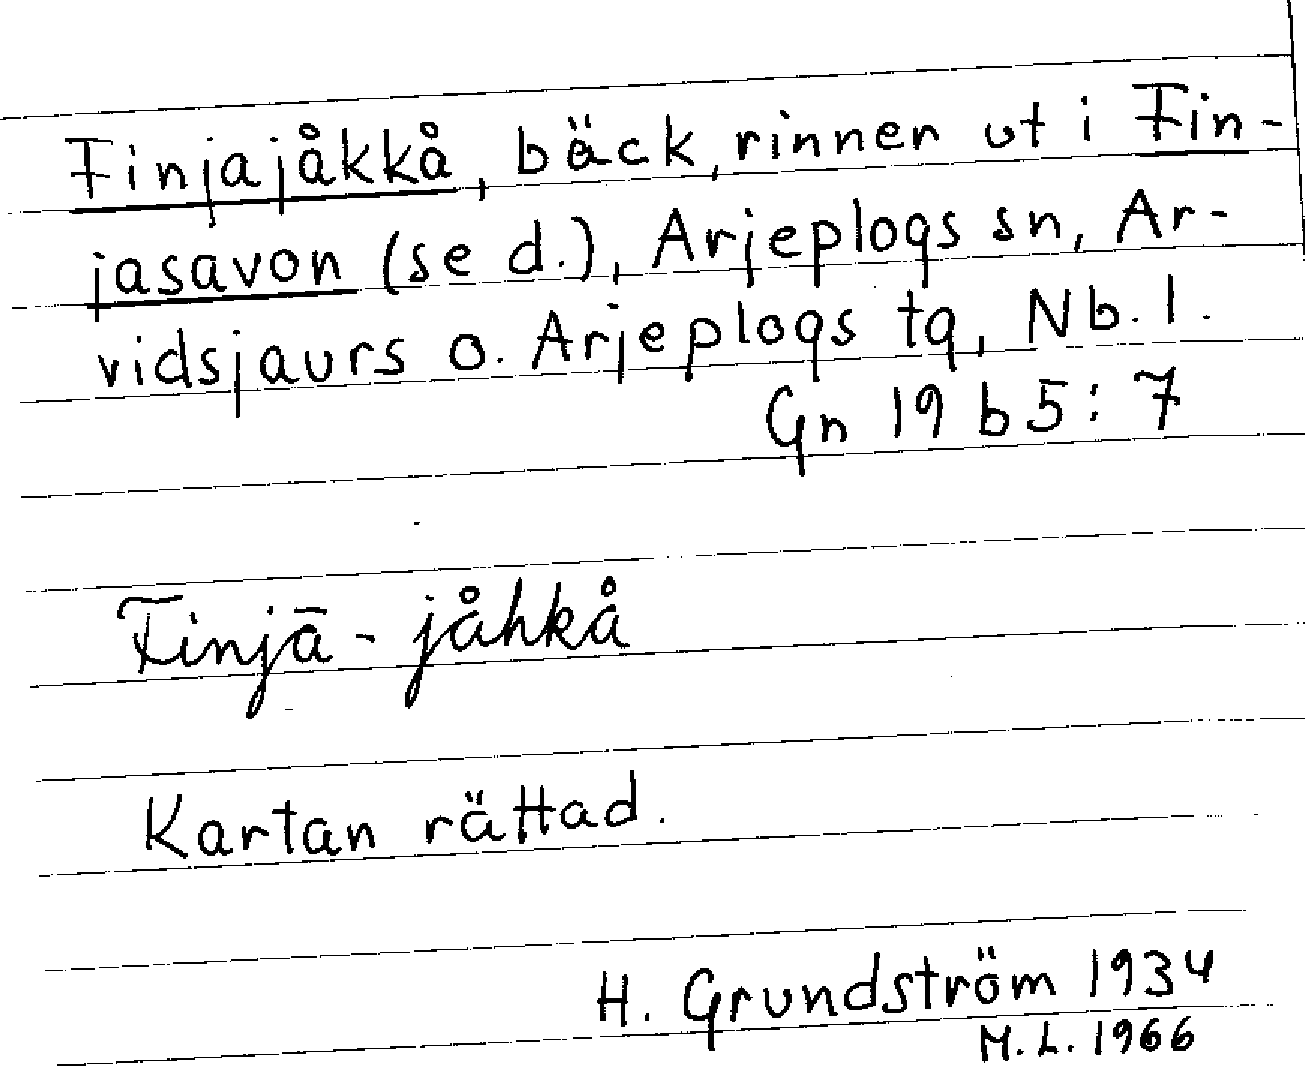 Finjajåkkå, bäck, rinner ut i Fin-
jasavon (se d.), Arjeplogs sn, Ar-
vidsjaurs o. Arjeplogs tg, Nb. l.
Gn 19 b5: 7
Finjā-jåhkå
Kartan rättad.
H. Grundström 1934
M.L. 1966